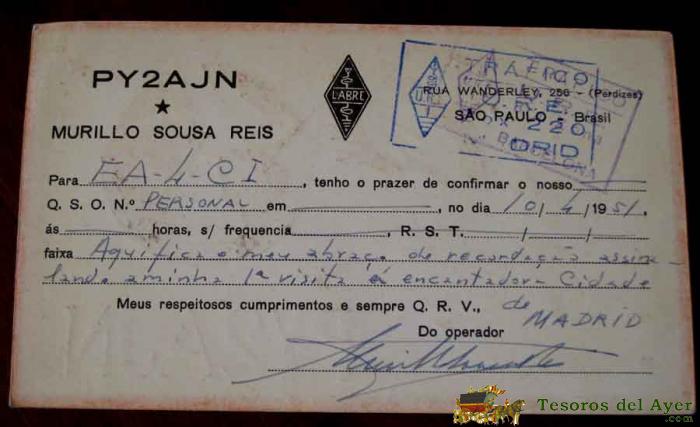 PY2AJN
MURILLO SOUSA REIS
LABRE
TRÁFICO
RUA WANDERLEY, 256 - (Perdizes)
SÃO PAULO - Brasil
220
BARCELONA
Para EA-4-CI, tenho o prazer de confirmar o nosso
Q. S. O. N.º PERSONAL em, no dia 10/4/1951,
ás horas, s/ frequencia, R. S. T. / /
faixa Aqui fica o meu abraço de recordação assina
lando a minha 1ª visita á encantadora Cidade
de MADRID
Meus respeitosos cumprimentos e sempre Q. R. V.,
Do operador
Tesoros del Ayer
.com